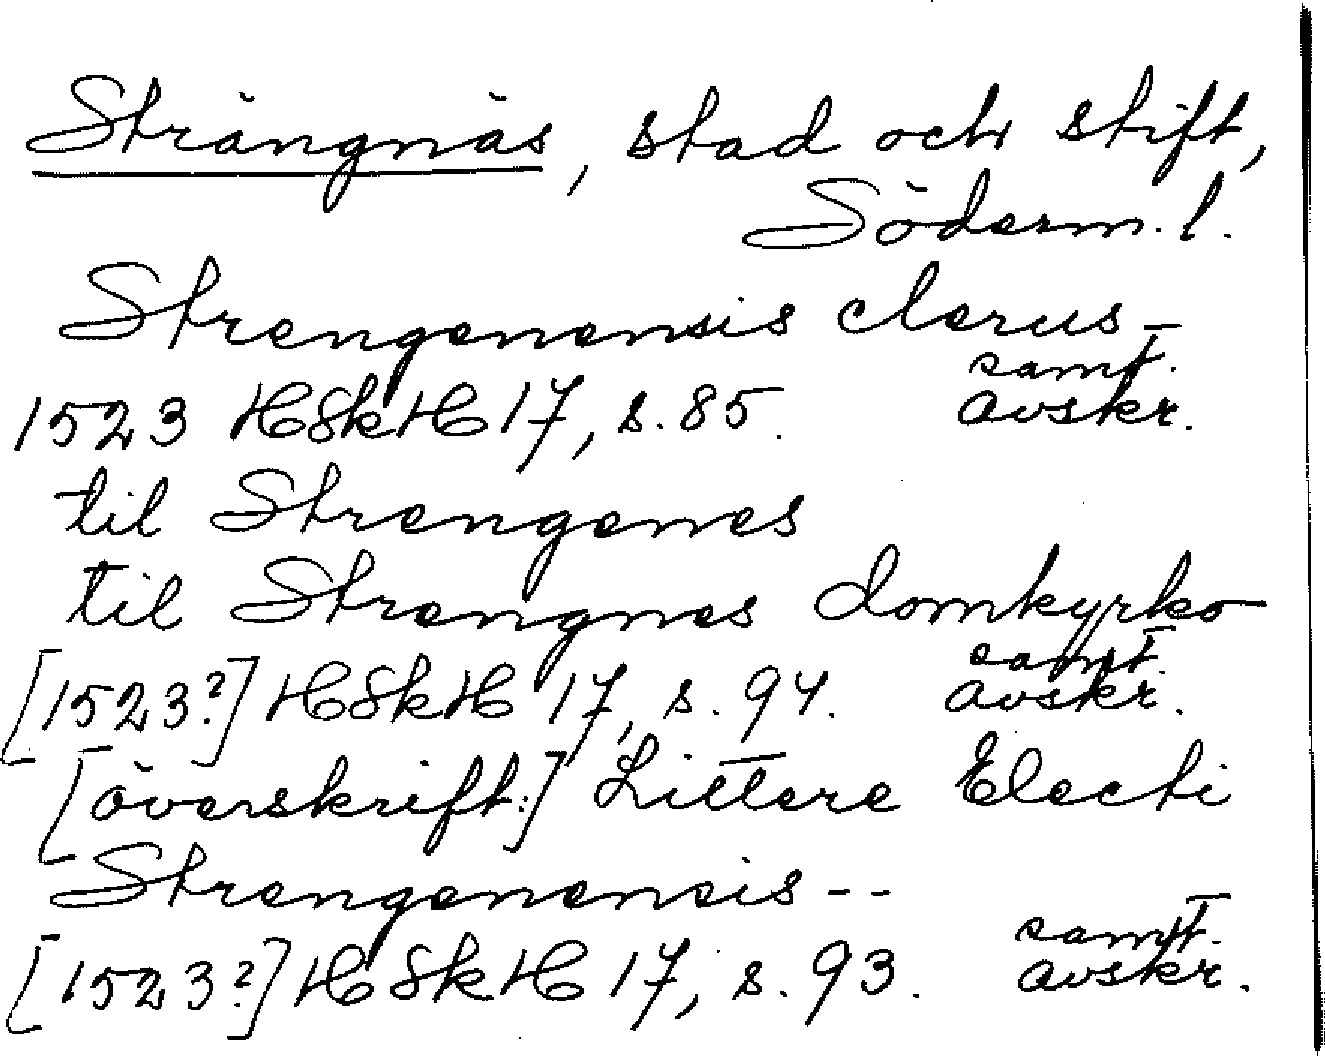 Strängnäs, stad och stift,
Söderm. l.
Strengenensis clerus
1523 HSkH 17, s. 85. samt. avskr.
til Strengenes
til Strengnes domkyrko
[1523?] HSkH 17, s. 94. samt. avskr.
[överskrift:] Littere Electi
Strengenensis --
[1523?] HSkH 17, s. 93. samt. avskr.